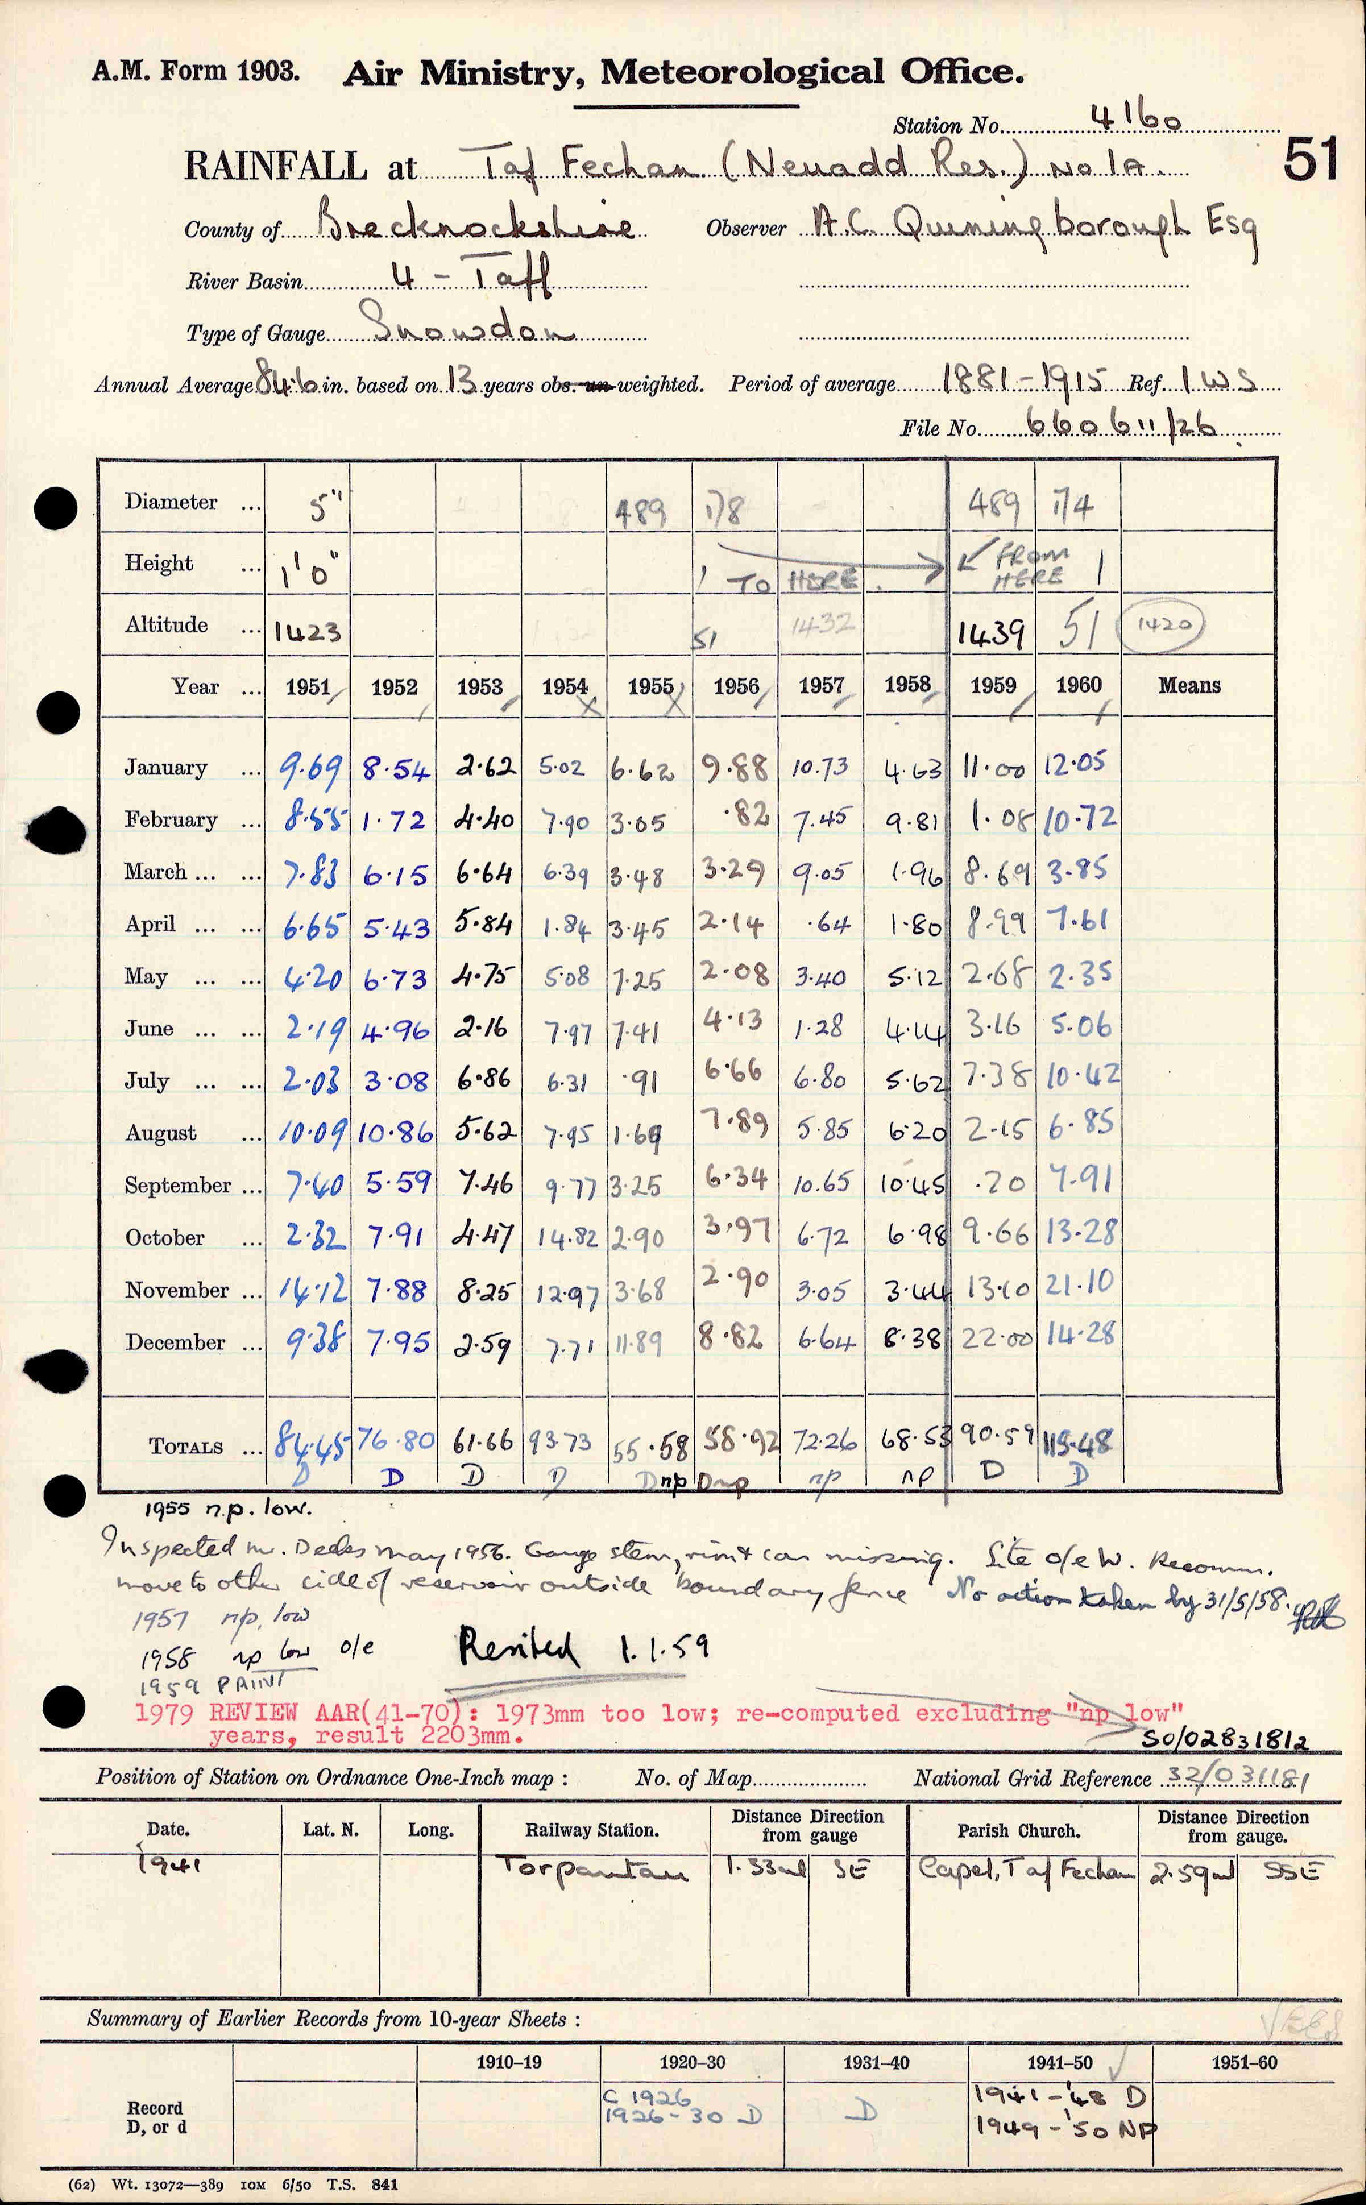 A.M. Form 1903. Air Ministry, Meteorological Office.
Station No. 4160
51
RAINFALL at Taf Fechan (Neuadd Res.) No 1A.
County of Brecknockshire Observer A.C. Quiningborough Esq
River Basin 4 - Taff
Type of Gauge Snowdon
Annual Average 84.6 in. based on 13 years obs. un weighted. Period of average 1881-1915 Ref. 1 W S
File No. 660611/26
Diameter ... 5" 489 178 489 174
Height ... 1'0" TO HERE. FROM HERE
Altitude ... 1423 51 1432 1439 51 1420
Year ... 1951 1952 1953 1954 1955 1956 1957 1958 1959 1960 Means
January ... 9.69 8.54 2.62 5.02 6.62 9.88 10.73 4.63 11.00 12.05
February ... 8.55 1.72 4.40 7.90 3.05 .82 7.45 9.81 1.08 10.72
March ... ... 7.83 6.15 6.64 6.39 3.48 3.29 9.05 1.96 8.69 3.85
April ... ... 6.65 5.43 5.84 1.84 3.45 2.14 .64 1.80 8.99 7.61
May ... ... 4.20 6.73 4.75 5.08 7.25 2.08 3.40 5.12 2.68 2.35
June ... ... 2.19 4.96 2.16 7.97 7.41 4.13 1.28 4.14 3.16 5.06
July ... ... 2.03 3.08 6.86 6.31 .91 6.66 6.80 5.62 7.38 10.42
August ... 10.09 10.86 5.62 7.95 1.69 7.89 5.85 6.20 2.15 6.85
September ... 7.40 5.59 7.46 9.77 3.25 6.34 10.65 10.45 .20 7.91
October ... 2.32 7.91 4.47 14.82 2.90 3.97 6.72 6.98 9.66 13.28
November ... 14.12 7.88 8.25 12.97 3.68 2.90 3.05 3.44 13.10 21.10
December ... 9.38 7.95 2.59 7.71 11.89 8.82 6.64 8.38 22.00 14.28
TOTALS ... 84.45 76.80 61.66 93.73 55.58 58.92 72.26 68.53 90.59 115.48
D D D D D np D np np np D D
1955 n.p. low.
Inspected May 1956. Gauge stem, rim & can missing. Site o/e W. Recomm.
move to other side of reservoir outside boundary fence No action taken by 31/5/58.
1957 np. low
1958 np low o/e Resited 1.1.59
1959 PAINT
1979 REVIEW AAR(41-70): 1973mm too low; re-computed excluding "np low"
years, result 2203mm.
SO/02831812
Position of Station on Ordnance One-Inch map : No. of Map National Grid Reference 32/031181
Date. Lat. N. Long. Railway Station. Distance Direction from gauge Parish Church. Distance Direction from gauge.
1941 Torpantau 1.33ml SE Capel, Taf Fechan 2.59ml SSE
Summary of Earlier Records from 10-year Sheets :
1910-19 1920-30 1931-40 1941-50 1951-60
Record D, or d
C 1926
1926-30 D D
1941-'48 D
1949-'50 NP
(62) Wt. 13072—389 10M 6/50 T.S. 841